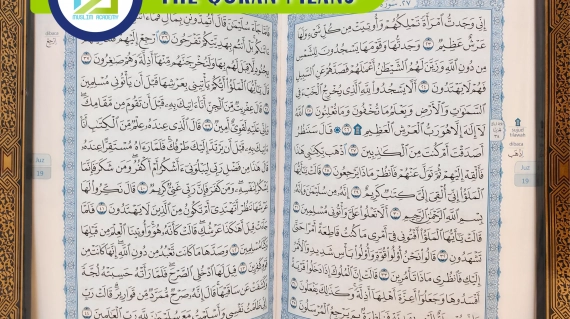 THE QURAN MEANS
MUSLIM ACADEMY
٢٧
إِنِّي وَجَدتُّ ٱمْرَأَةً تَمْلِكُهُمْ وَأُوتِيَتْ مِن كُلِّ شَيْءٍ وَلَهَا
عَرْشٌ عَظِيمٌ ٢٣ وَجَدتُّهَا وَقَوْمَهَا يَسْجُدُونَ لِلشَّمْسِ
مِن دُونِ ٱللَّهِ وَزَيَّنَ لَهُمُ ٱلشَّيْطَٰنُ أَعْمَٰلَهُمْ فَصَدَّهُمْ عَنِ ٱلسَّبِيلِ
فَهُمْ لَا يَهْتَدُونَ ٢٤ أَلَّا يَسْجُدُوا۟ لِلَّهِ ٱلَّذِي يُخْرِجُ ٱلْخَبْءَ فِي
ٱلسَّمَٰوَٰتِ وَٱلْأَرْضِ وَيَعْلَمُ مَا تُخْفُونَ وَمَا تُعْلِنُونَ ٢٥ ٱللَّهُ
لَآ إِلَٰهَ إِلَّا هُوَ رَبُّ ٱلْعَرْشِ ٱلْعَظِيمِ ۩ ٢٦ قَالَ سَنَنظُرُ
أَصَدَقْتَ أَمْ كُنتَ مِنَ ٱلْكَٰذِبِينَ ٢٧ ٱذْهَب بِّكِتَٰبِي هَٰذَا
فَأَلْقِهْ إِلَيْهِمْ ثُمَّ تَوَلَّ عَنْهُمْ فَٱنظُرْ مَاذَا يَرْجِعُونَ ٢٨ قَالَتْ يَٰٓأَيُّهَا
ٱلْمَلَؤُا۟ إِنِّيٓ أُلْقِيَ إِلَيَّ كِتَٰبٌ كَرِيمٌ ٢٩ إِنَّهُۥ مِن سُلَيْمَٰنَ وَإِنَّهُۥ
بِسْمِ ٱللَّهِ ٱلرَّحْمَٰنِ ٱلرَّحِيمِ ٣٠ أَلَّا تَعْلُوا۟ عَلَيَّ وَأْتُونِي مُسْلِمِينَ ٣١
قَالَتْ يَٰٓأَيُّهَا ٱلْمَلَؤُا۟ أَفْتُونِي فِيٓ أَمْرِي مَا كُنتُ قَاطِعَةً أَمْرًا حَتَّىٰ
تَشْهَدُونِ ٣٢ قَالُوا۟ نَحْنُ أُو۟لُوا۟ قُوَّةٍ وَأُو۟لُوا۟ بَأْسٍ شَدِيدٍ وَٱلْأَمْرُ
إِلَيْكِ فَٱنظُرِي مَاذَا تَأْمُرِينَ ٣٣ قَالَتْ إِنَّ ٱلْمُلُوكَ إِذَا دَخَلُوا۟ قَرْيَةً
أَفْسَدُوهَا وَجَعَلُوٓا۟ أَعِزَّةَ أَهْلِهَآ أَذِلَّةً وَكَذَٰلِكَ يَفْعَلُونَ ٣٤
وَإِنِّي مُرْسِلَةٌ إِلَيْهِم بِهَدِيَّةٍ فَنَاظِرَةٌۢ بِمَ يَرْجِعُ ٱلْمُرْسَلُونَ ٣٥
sujud
tilawah
dibaca
Juz
19
فَلَمَّا جَآءَ سُلَيْمَٰنَ قَالَ أَتُمِدُّونَنِ بِمَالٍ
بَلْ أَنتُم بِهَدِيَّتِكُمْ تَفْرَحُونَ ٣٦ ٱرْجِعْ إِلَيْهِمْ
لَا قِبَلَ لَهُم بِهَا وَلَنُخْرِجَنَّهُم مِّنْهَآ أَذِلَّةً وَهُمْ صَٰغِرُونَ ٣٧
قَالَ يَٰٓأَيُّهَا ٱلْمَلَؤُا۟ أَيُّكُمْ يَأْتِينِي بِعَرْشِهَا قَبْلَ أَن يَأْتُونِي مُسْلِمِينَ
٣٨ قَالَ عِفْرِيتٌ مِّنَ ٱلْجِنِّ أَنَا۠ ءَاتِيكَ بِهِۦ قَبْلَ أَن تَقُومَ مِن مَّقَامِكَ
وَإِنِّي عَلَيْهِ لَقَوِيٌّ أَمِينٌ ٣٩ قَالَ ٱلَّذِي عِندَهُۥ عِلْمٌ مِّنَ ٱلْكِتَٰبِ أَنَا۠
ءَاتِيكَ بِهِۦ قَبْلَ أَن يَرْتَدَّ إِلَيْكَ طَرْفُكَ فَلَمَّا رَءَاهُ مُسْتَقِرًّا عِندَهُۥ
قَالَ هَٰذَا مِن فَضْلِ رَبِّي لِيَبْلُوَنِيٓ ءَأَشْكُرُ أَمْ أَكْفُرُ وَمَن شَكَرَ فَإِنَّمَا
يَشْكُرُ لِنَفْسِهِۦ وَمَن كَفَرَ فَإِنَّ رَبِّي غَنِيٌّ كَرِيمٌ ٤٠ قَالَ نَكِّرُوا۟ لَهَا
عَرْشَهَا نَنظُرْ أَتَهْتَدِيٓ أَمْ تَكُونُ مِنَ ٱلَّذِينَ لَا يَهْتَدُونَ ٤١ فَلَمَّا
جَآءَتْ قِيلَ أَهَٰكَذَا عَرْشُكِ قَالَتْ كَأَنَّهُۥ هُوَ وَأُوتِينَا ٱلْعِلْمَ مِن قَبْلِهَا
وَكُنَّا مُسْلِمِينَ ٤٢ وَصَدَّهَا مَا كَانَت تَّعْبُدُ مِن دُونِ ٱللَّهِ إِنَّهَا كَانَتْ مِن
قَوْمٍ كَٰفِرِينَ ٤٣ قِيلَ لَهَا ٱدْخُلِي ٱلصَّرْحَ فَلَمَّا رَأَتْهُ حَسِبَتْهُ لُجَّةً
وَكَشَفَتْ عَن سَاقَيْهَا قَالَ إِنَّهُۥ صَرْحٌ مُّمَرَّدٌ مِّن قَوَارِيرَ قَالَتْ رَبِّ
إِنِّي ظَلَمْتُ نَفْسِي وَأَسْلَمْتُ مَعَ سُلَيْمَٰنَ لِلَّهِ رَبِّ ٱلْعَٰلَمِينَ ٤٤
dibaca
Juz
19